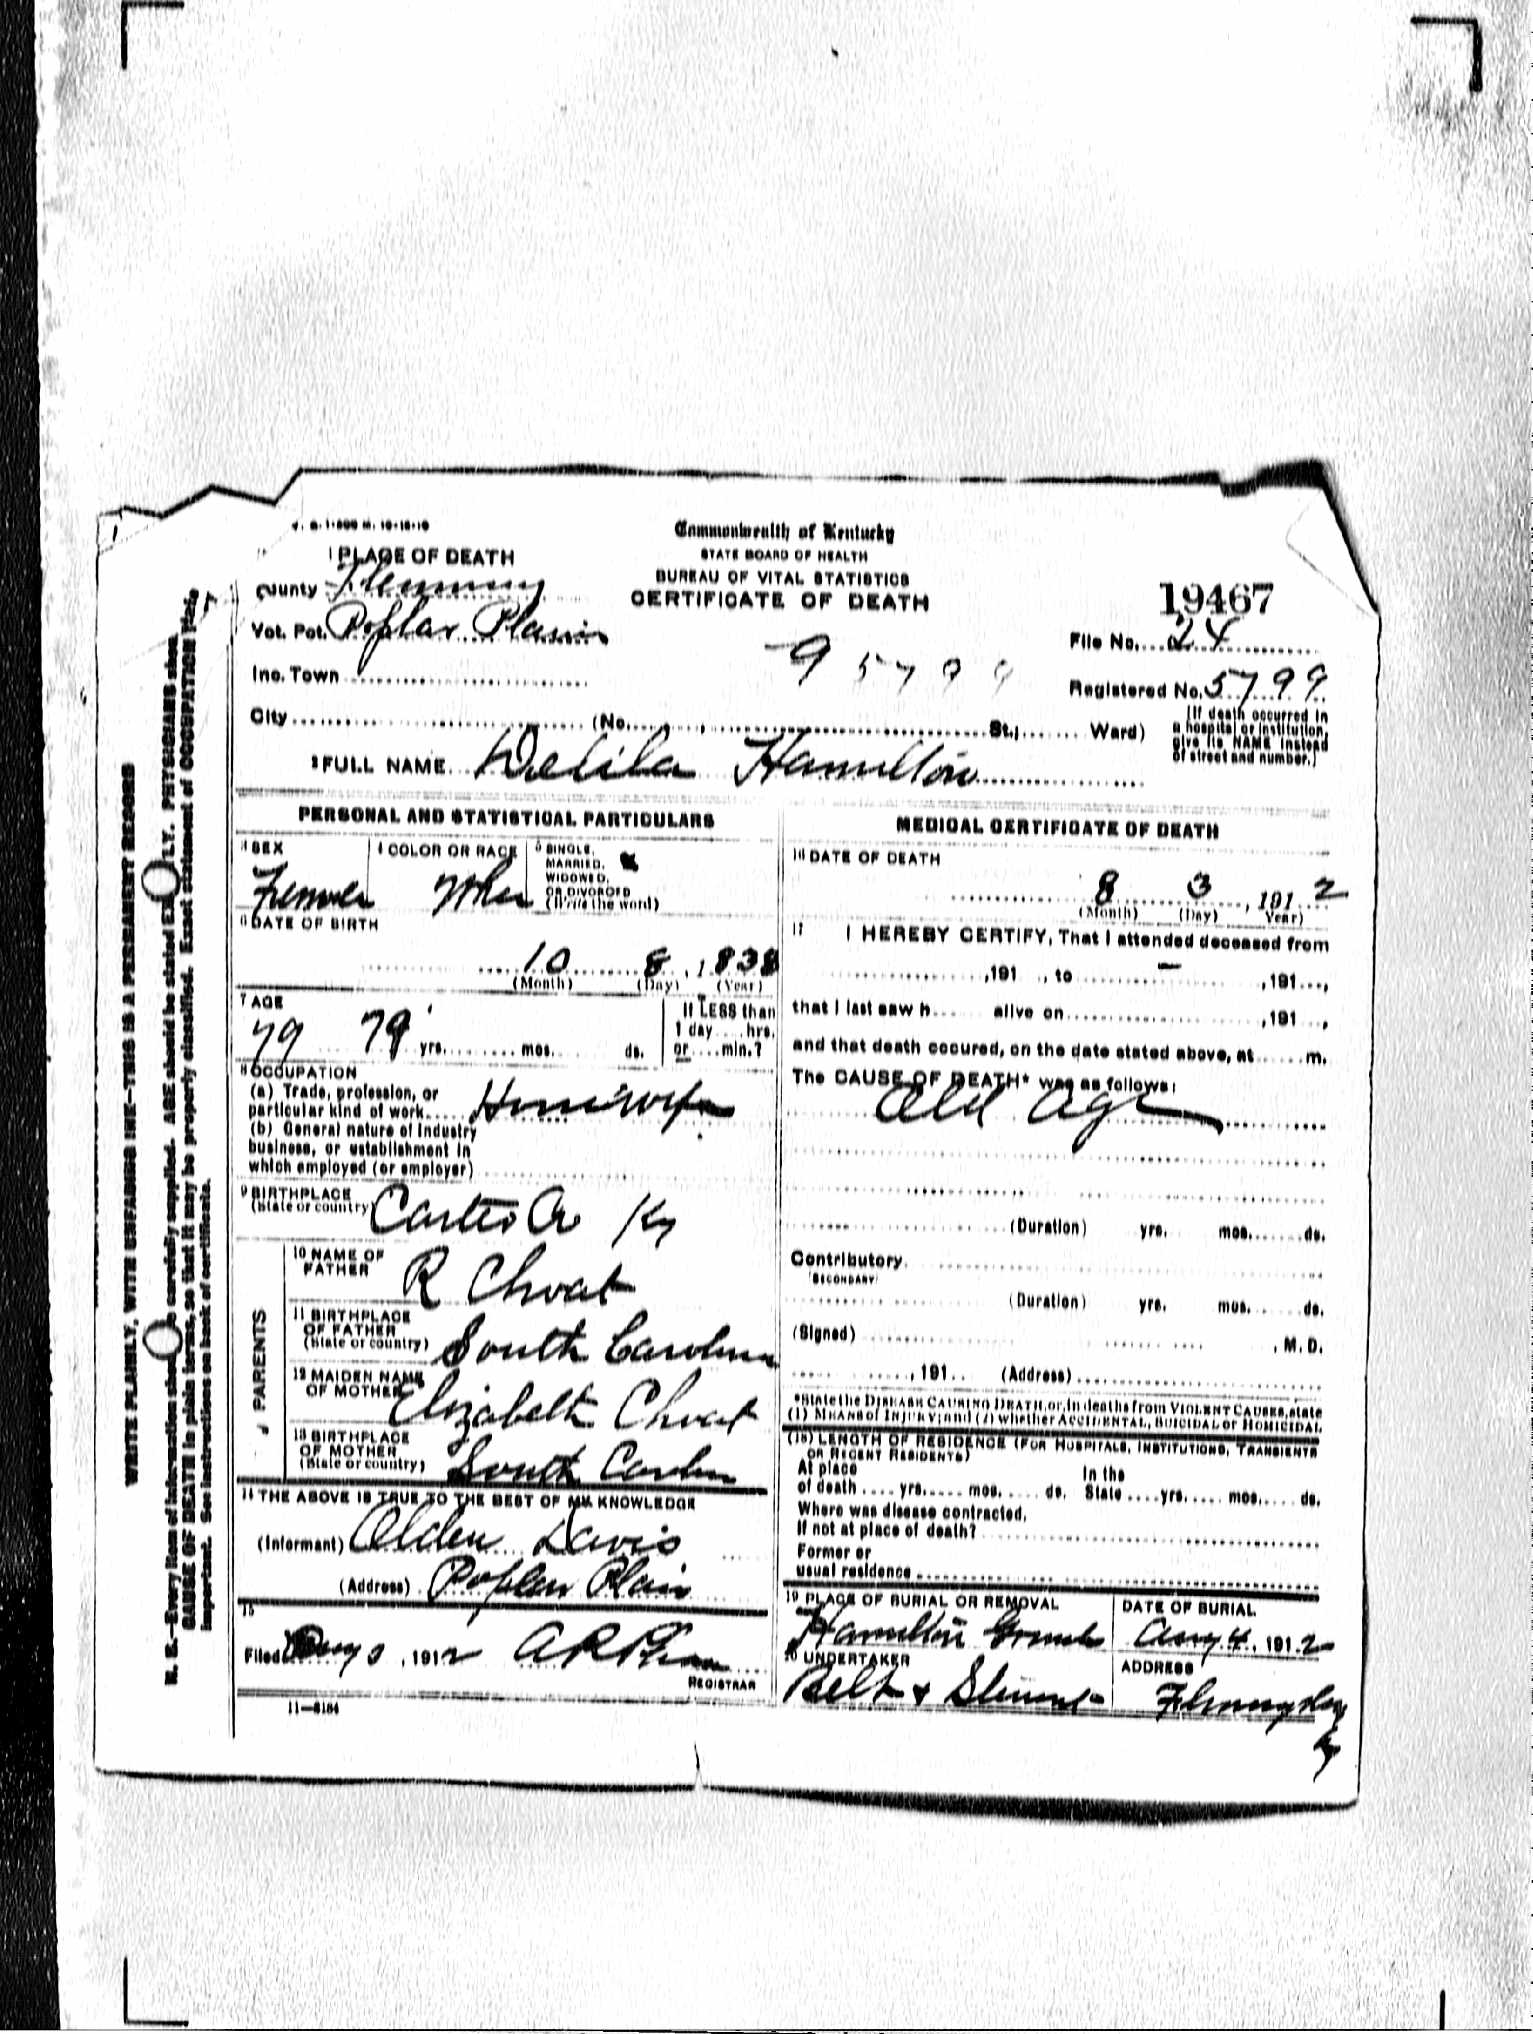 V. S. 1-500 M. 10-18-10
Commonwealth of Kentucky
STATE BOARD OF HEALTH
BUREAU OF VITAL STATISTICS
CERTIFICATE OF DEATH
1 PLACE OF DEATH
County Fleming
Vot. Pct. Poplar Plains
Inc. Town
19467
File No. 24
95799
Registered No. 5799
City (No. St.; Ward)
(If death occurred in a hospital or institution, give its NAME instead of street and number.)
2 FULL NAME Delila Hamilton
PERSONAL AND STATISTICAL PARTICULARS
3 SEX
4 COLOR OR RACE
5 SINGLE, MARRIED, WIDOWED, OR DIVORCED (Write the word)
6 DATE OF BIRTH
10 8, 1838
(Month) (Day) (Year)
7 AGE
79 79 yrs. mos. ds.
If LESS than 1 day hrs. or min.?
8 OCCUPATION
(a) Trade, profession, or
particular kind of work Housewife
(b) General nature of industry
business, or establishment in
which employed (or employer)
9 BIRTHPLACE
(State or country) Carter Co Ky
PARENTS
10 NAME OF
FATHER R Choat
11 BIRTHPLACE
OF FATHER
(State or country) South Carolina
12 MAIDEN NAME
OF MOTHER Elizabeth Choat
13 BIRTHPLACE
OF MOTHER
(State or country) South
14 THE ABOVE IS TRUE TO THE BEST OF MY KNOWLEDGE
(Informant) Alden Davis
(Address) Poplar Plain
15
Filed Aug 3, 1912
REGISTRAR
11-3184
MEDICAL CERTIFICATE OF DEATH
16 DATE OF DEATH
8 3, 1912
(Month) (Day) Year)
17 I HEREBY CERTIFY, That I attended deceased from
,191 , to - ,191 ,
that I last saw h alive on ,191 ,
and that death occured, on the date stated above, at m.
The CAUSE OF DEATH* was as follows:
Old Age
(Duration) yrs. mos. ds.
Contributory
(SECONDARY)
(Duration) yrs. mos. ds.
(Signed) , M. D.
, 191 (Address)
*State the DISEASE CAUSING DEATH, or, in deaths from VIOLENT CAUSES, state
(1) MEANS of INJURY; and (2) whether ACCIDENTAL, SUICIDAL or HOMICIDAL
(18) LENGTH OF RESIDENCE (FOR HOSPITALS, INSTITUTIONS, TRANSIENTS
OR RECENT RESIDENTS)
At place In the
of death yrs. mos. ds. State yrs. mos. ds.
Where was disease contracted,
If not at place of death?
Former or
usual residence
19 PLACE OF BURIAL OR REMOVAL
Hamilton
DATE OF BURIAL
Aug 4, 1912
20 UNDERTAKER
Belt &
ADDRESS
WRITE PLAINLY, WITE UNFADING INK—THIS IS A PERMANENT RECORD
N. B.—Every item of information should be carefully supplied. AGE should be stated EXACTLY. PHYSICIANS shou
CAUSE OF DEATH in plain terms, so that it may be properly classified. Exact statement of OCCUPATION
important. See instructions on back of certificate.